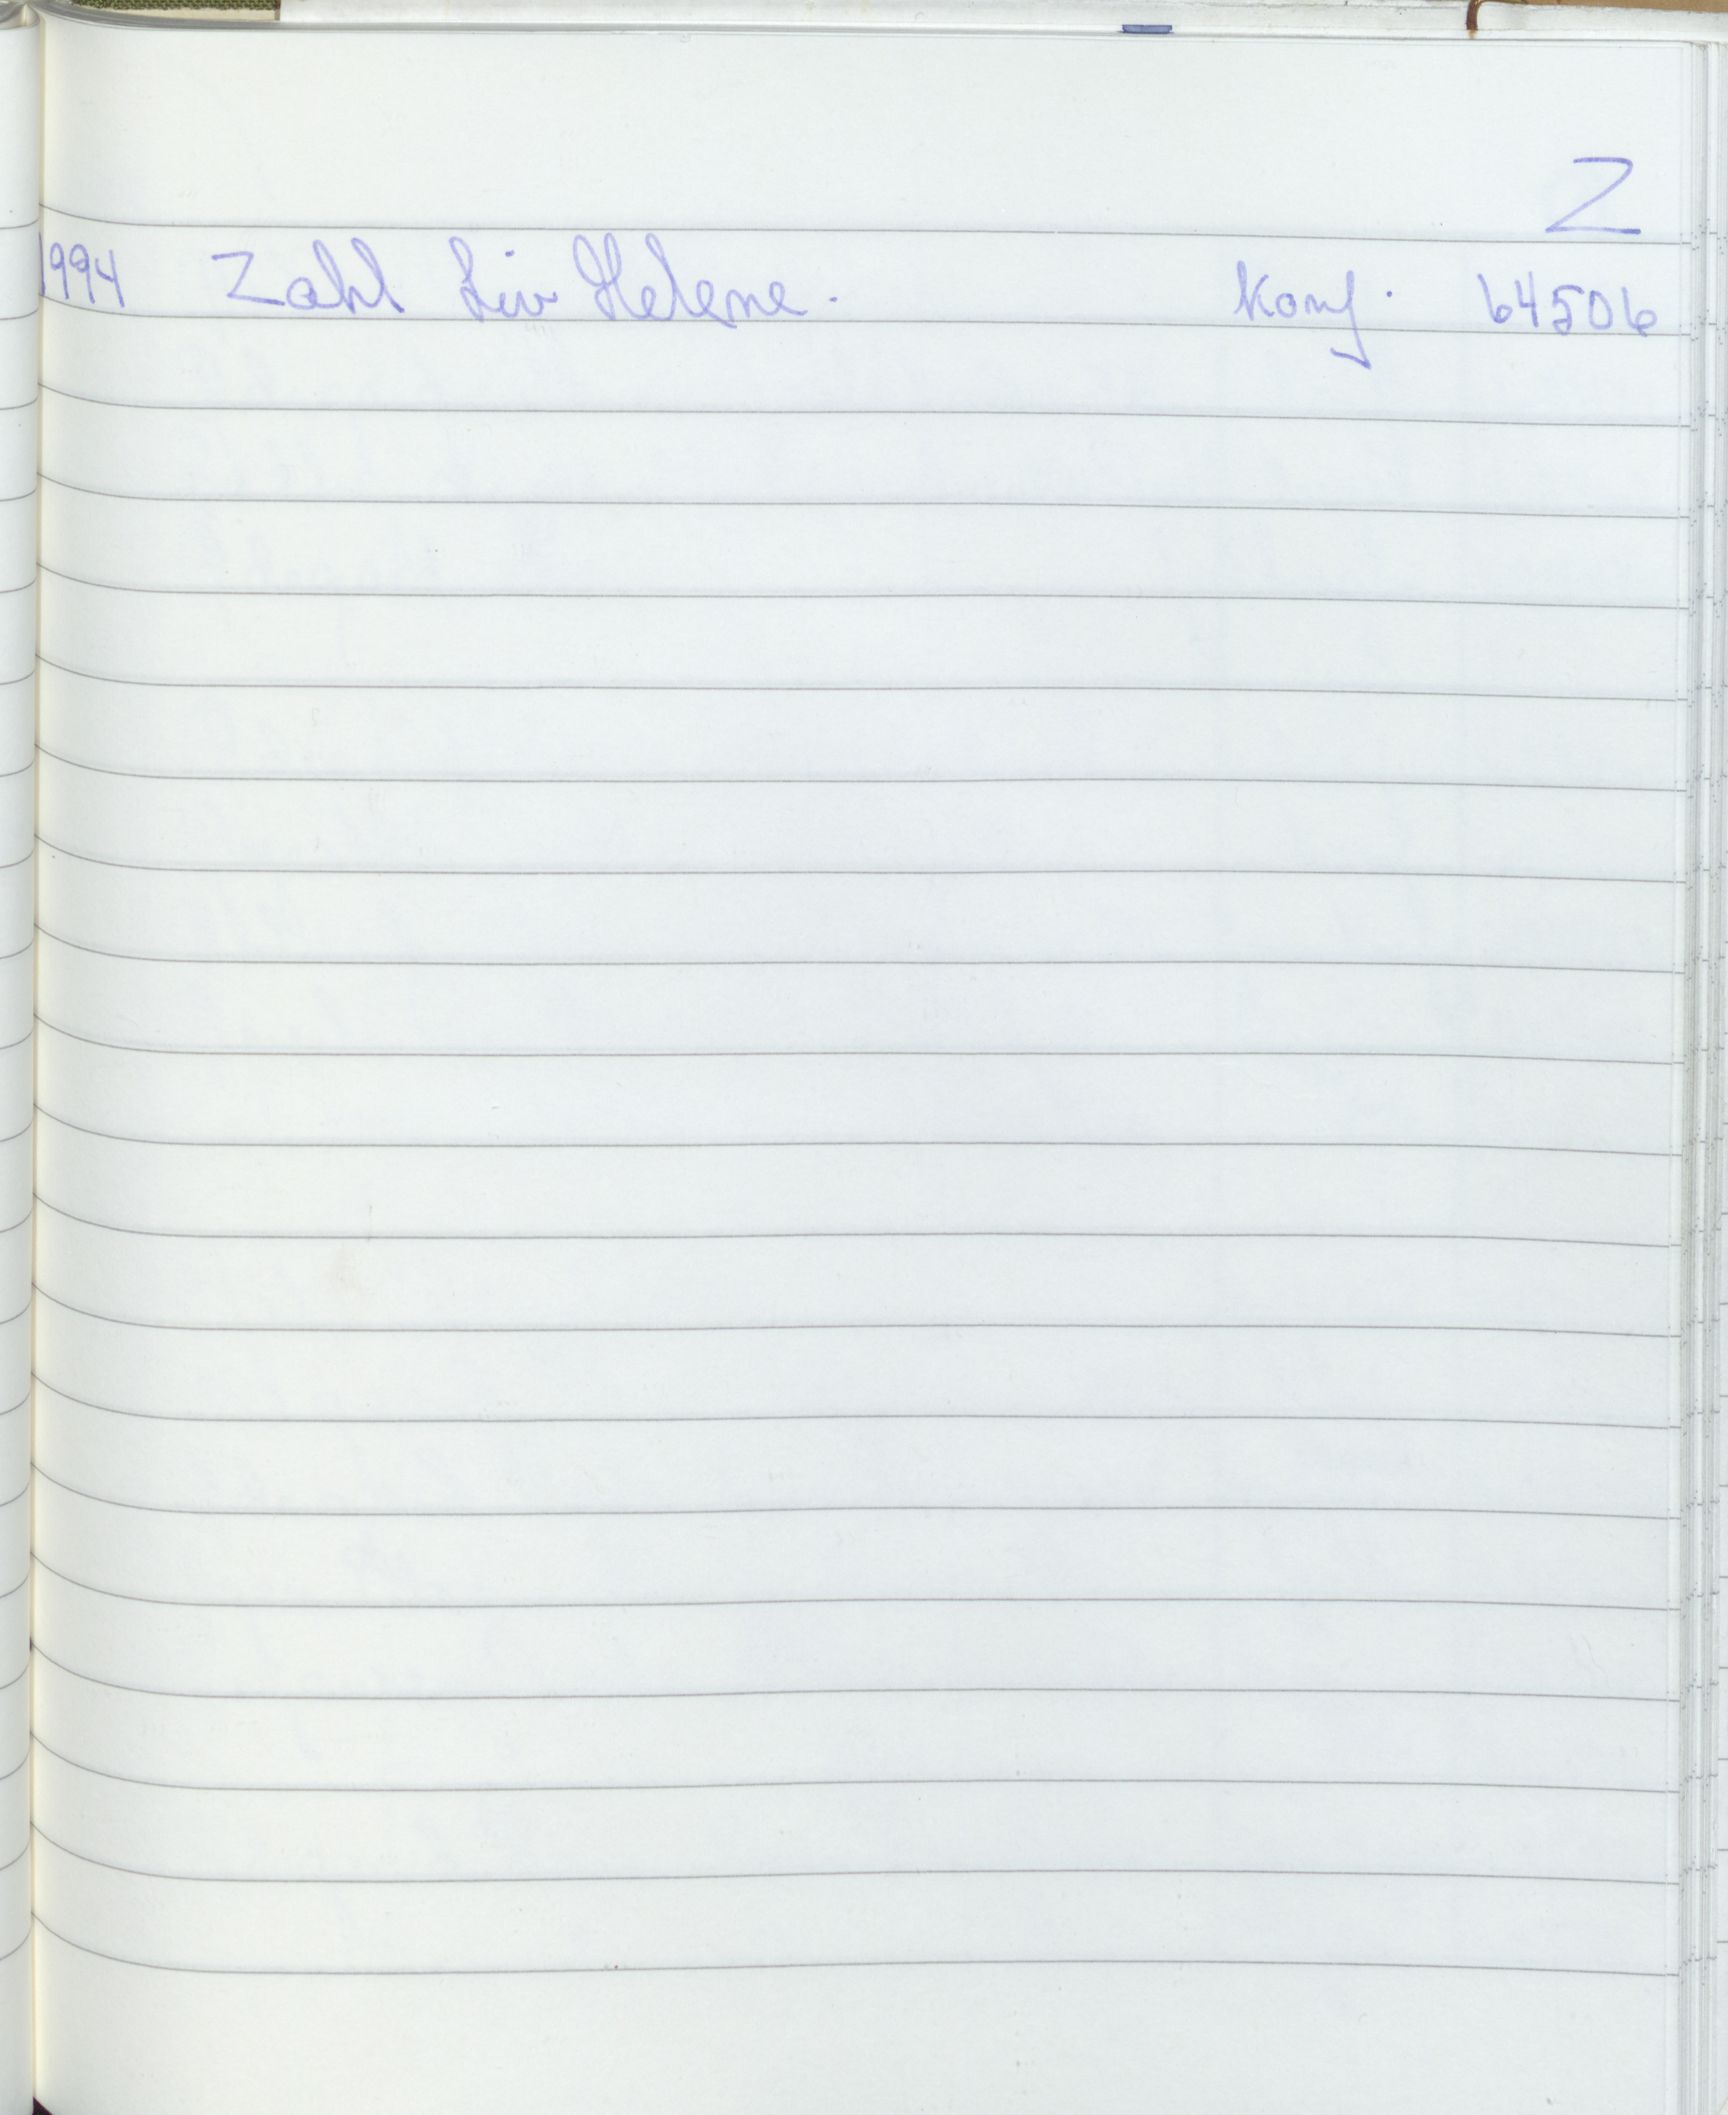 Z
1994 Zahl Liv Helene. Konf. 64506